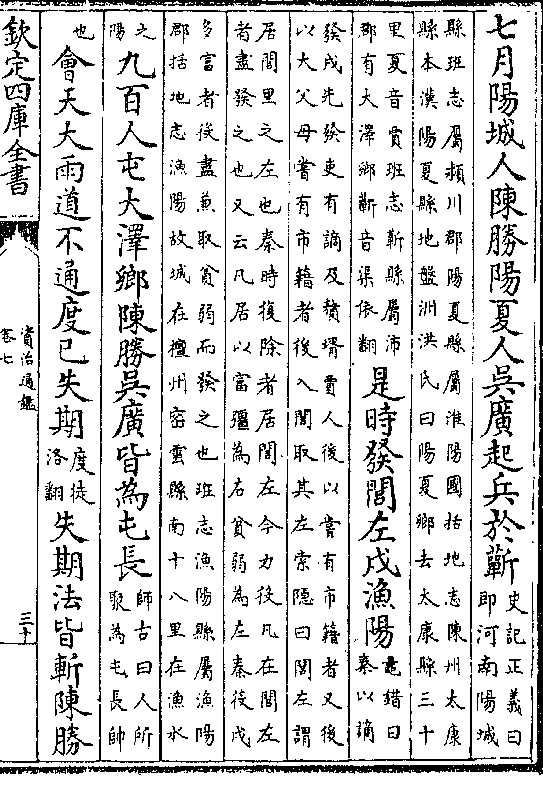 七月陽城人陳勝陽夏人吳廣起兵於蘄史記正義曰即河南陽城
縣班志屬頻川郡陽夏縣屬淮陽國括地志陳州太康
縣本漢陽夏縣地盤洲洪氏曰陽夏鄉去太康縣三十
里夏音賈班志蘄縣屬沛郡有大澤鄉蘄音渠依翻是時發閭左戍漁陽鼂錯曰秦以謫
發戍先發吏有謫及贅壻賈人後以嘗有市籍者又後
以大父母嘗有市籍者後入閭取其左索隱曰閭左謂
居閭里之左也秦時復除者居閭左今力役凡在閭左
者盡發之也又云凡居以富彊為右貧弱為左秦役戍
多富者役盡兼取貧弱而發之也班志漁陽縣屬漁陽
郡括地志漁陽故城在檀州密雲縣南十八里在漁水
之陽九百人屯大澤鄉陳勝吳廣皆為屯長師古曰人所聚為屯長帥
也會天大雨道不通度已失期度徒洛翻失期法皆斬陳勝
欽定四庫全書
資治通鑑
卷七
三十